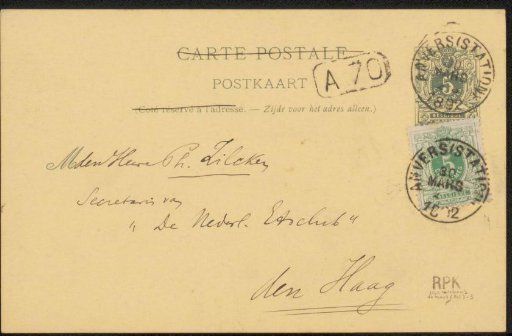 CARTE POSTALE
POSTKAART
(Coté réservé à l'adresse. — Zijde voor het adres alleen.)
A 70
ANVERS (STATION)
MARS
1892
5
ANVERS (STATION)
30
MARS
1892
5
Mden Heere Ph. Zilcken
Secretaris van
"De Nederl. Etsclub"
den Haag
RPK